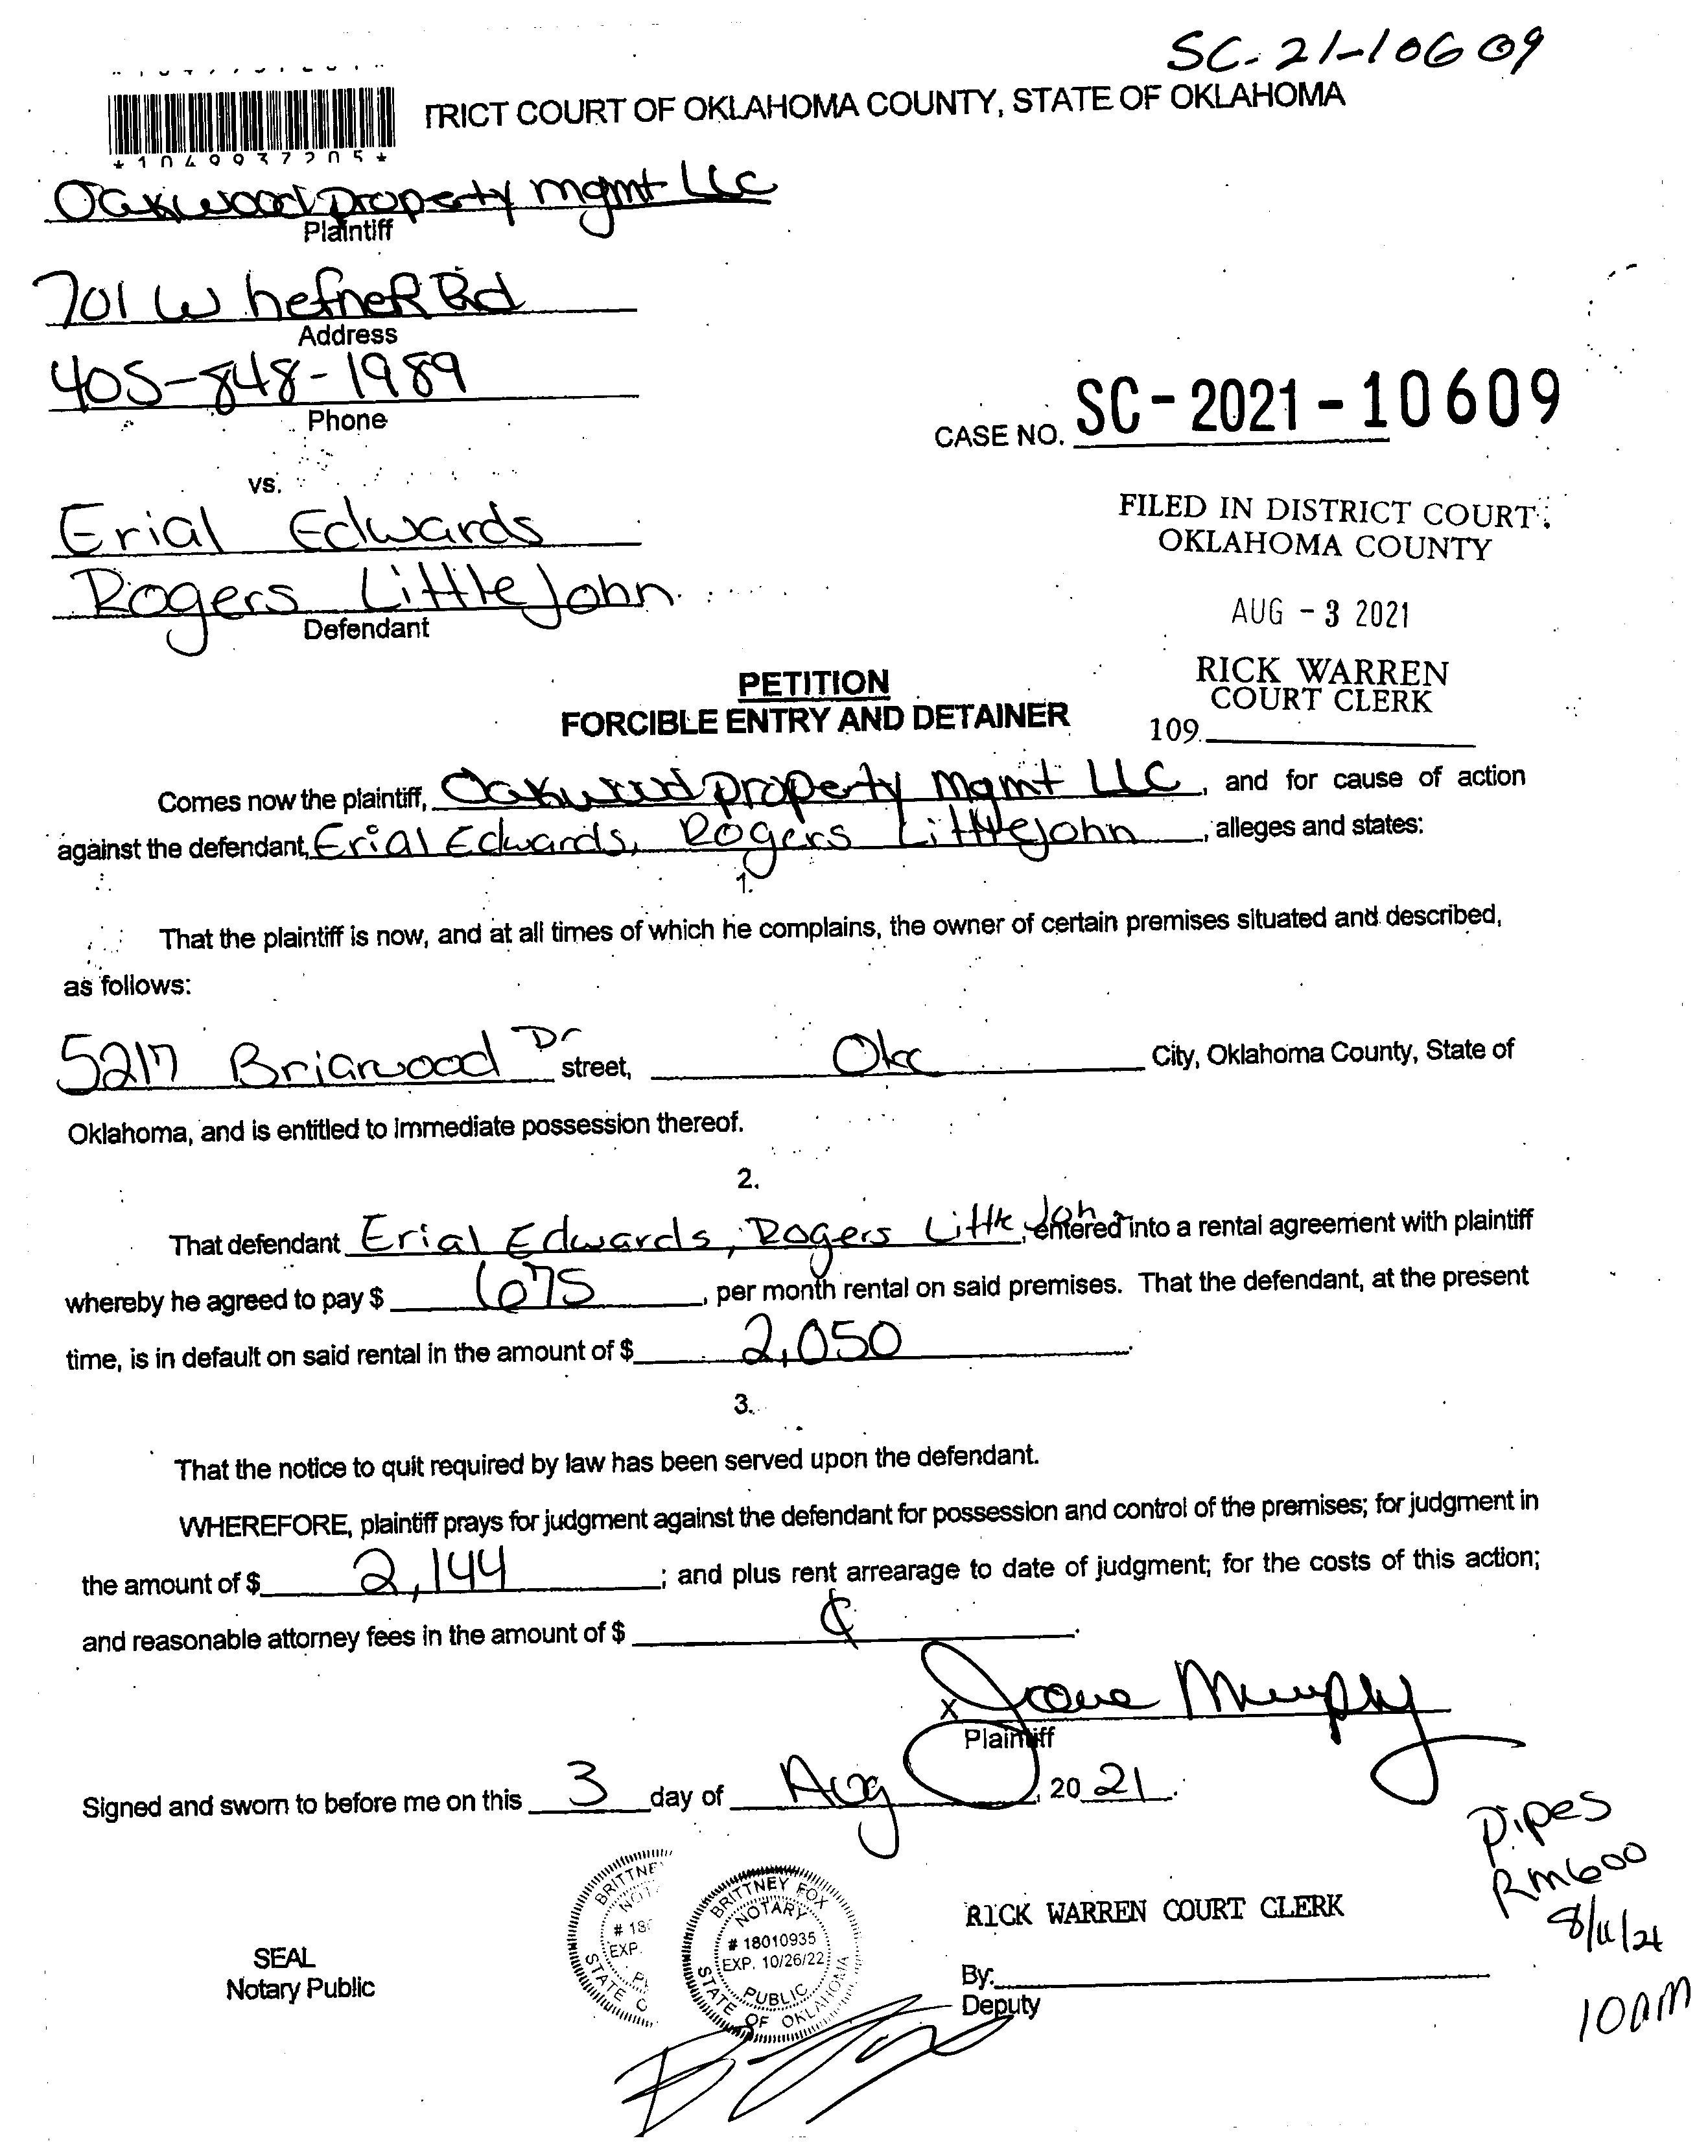 SC-21-10609
TRICT COURT OF OKLAHOMA COUNTY, STATE OF OKLAHOMA
*1049937205*
Oakwood property mgmt LLC
Plaintiff
701 W hefneR Rd
Address
405-848-1989
Phone
CASE NO. SC-2021-10609
vs.
Erial Edwards
Rogers LittleJohn
Defendant
FILED IN DISTRICT COURT
OKLAHOMA COUNTY
AUG - 3 2021
RICK WARREN
COURT CLERK
109
PETITION
FORCIBLE ENTRY AND DETAINER
Comes now the plaintiff, Oakwood property Mgmt LLC, and for cause of action
against the defendant, Erial Edwards, Rogers LittleJohn, alleges and states:
1.
That the plaintiff is now, and at all times of which he complains, the owner of certain premises situated and described,
as follows:
5217 Briarwood Dr street, Okc City, Oklahoma County, State of
Oklahoma, and is entitled to immediate possession thereof.
2.
That defendant Erial Edwards, Rogers Little John, entered into a rental agreement with plaintiff
whereby he agreed to pay $ 675, per month rental on said premises. That the defendant, at the present
time, is in default on said rental in the amount of $ 2,050.
3.
That the notice to quit required by law has been served upon the defendant.
WHEREFORE, plaintiff prays for judgment against the defendant for possession and control of the premises; for judgment in
the amount of $ 2,144; and plus rent arrearage to date of judgment; for the costs of this action;
and reasonable attorney fees in the amount of $
X Murphy
Plaintiff
Signed and sworn to before me on this 3 day of Aug, 2021.
Pipes
Rm600
8/11/21
10am
BRITTNEY
NOTA
# 18
EXP.
STATE O
BRITTNEY FOX
NOTARY
# 18010935
EXP. 10/26/22
PUBLIC
STATE OF OKLAHOMA
SEAL
Notary Public
RICK WARREN COURT CLERK
By:
Deputy